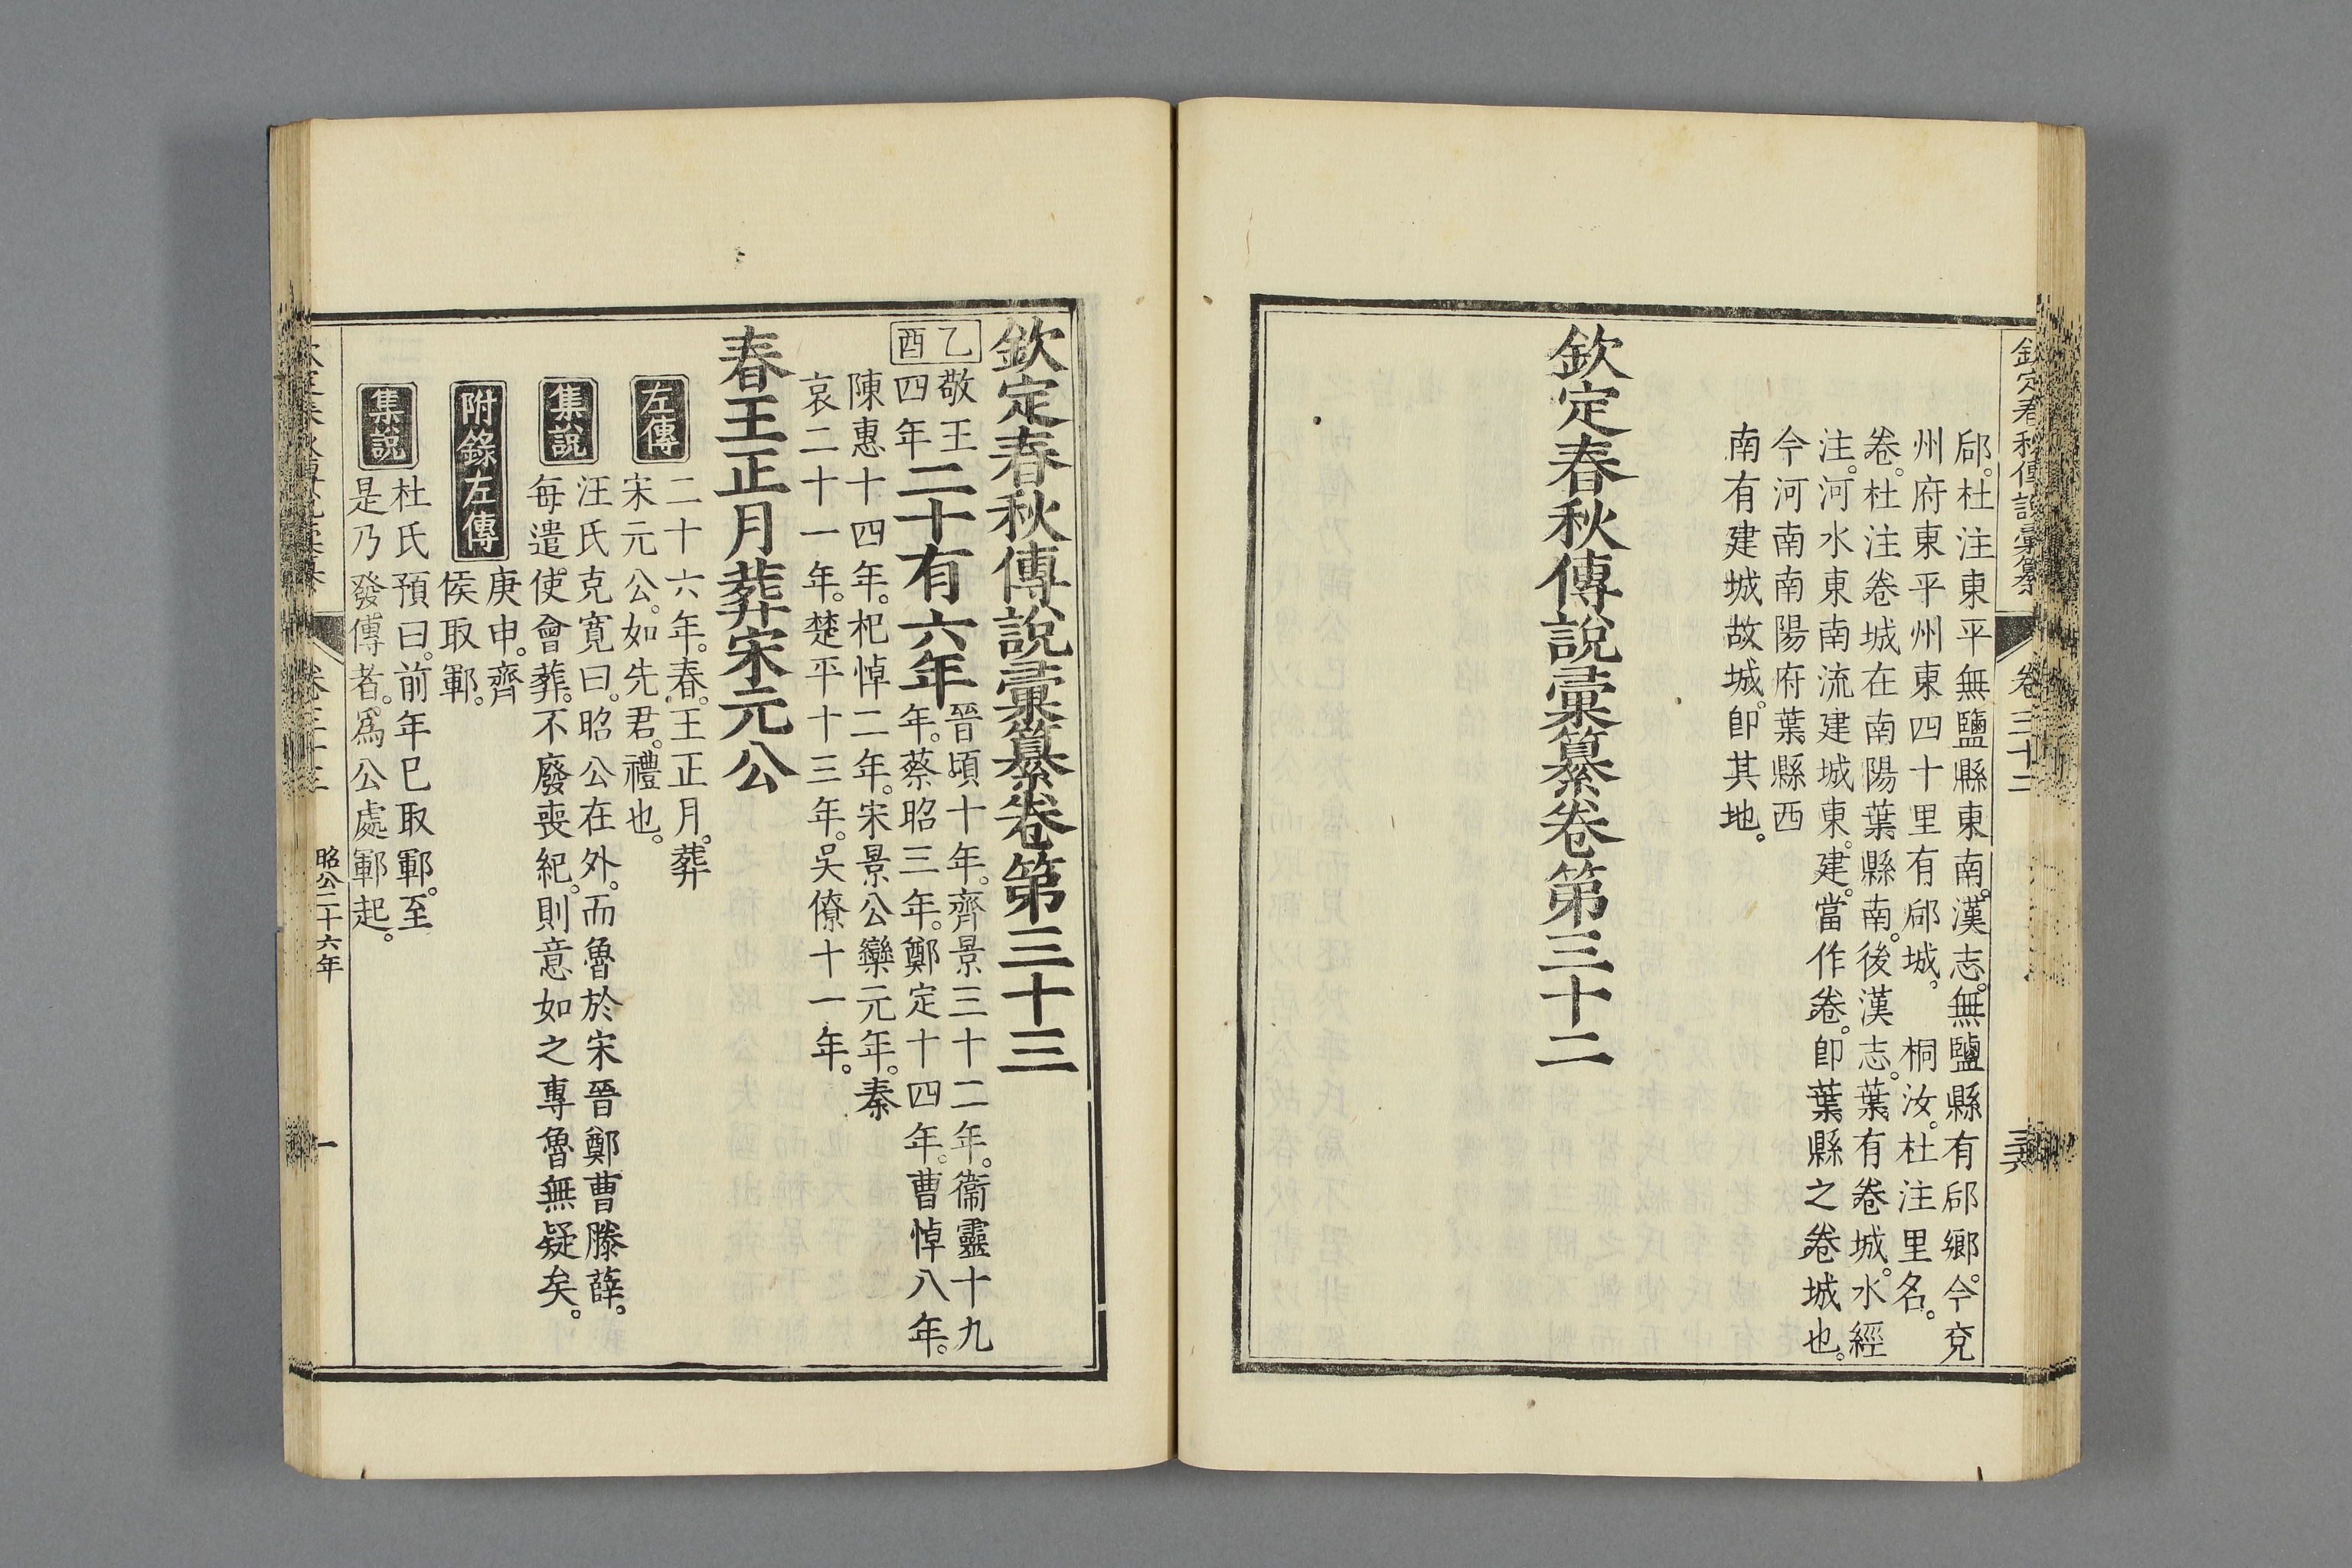 郈。杜注東平無鹽縣東南。漢志。無鹽縣有郈鄉。今兗
州府東平州東四十里有郈城。 桐汝。杜注里名。
卷。杜注卷城在南陽葉縣南。後漢志。葉有卷城。水經
注。河水東南流建城東。建。當作卷。卽葉縣之卷城也。
今河南南陽府葉縣西
南有建城故城。卽其地。
欽定春秋傳說彙纂卷第三十二
欽定春秋傳說彙纂 卷三十二
欽定春秋傳說彙纂卷第三十三
乙酉
敬王四年
二十有六年
晉頃十年。齊景三十二年。衞靈十九
年。蔡昭三年。鄭定十四年。曹悼八年。
陳惠十四年。杞悼二年。宋景公欒元年。秦
哀二十一年。楚平十三年。吳僚十一年。
春王正月葬宋元公
左傳
二十六年。春。王正月。葬
宋元公。如先君。禮也。
集說
汪氏克寬曰。昭公在外。而魯於宋晉鄭曹滕薛。
每遣使會葬。不廢喪紀。則意如之專魯無疑矣。
附錄左傳
庚申。齊
侯取鄆。
集說
杜氏預曰。前年已取鄆。至
是乃發傳者。爲公處鄆起。
卷三十三
昭公二十六年
一